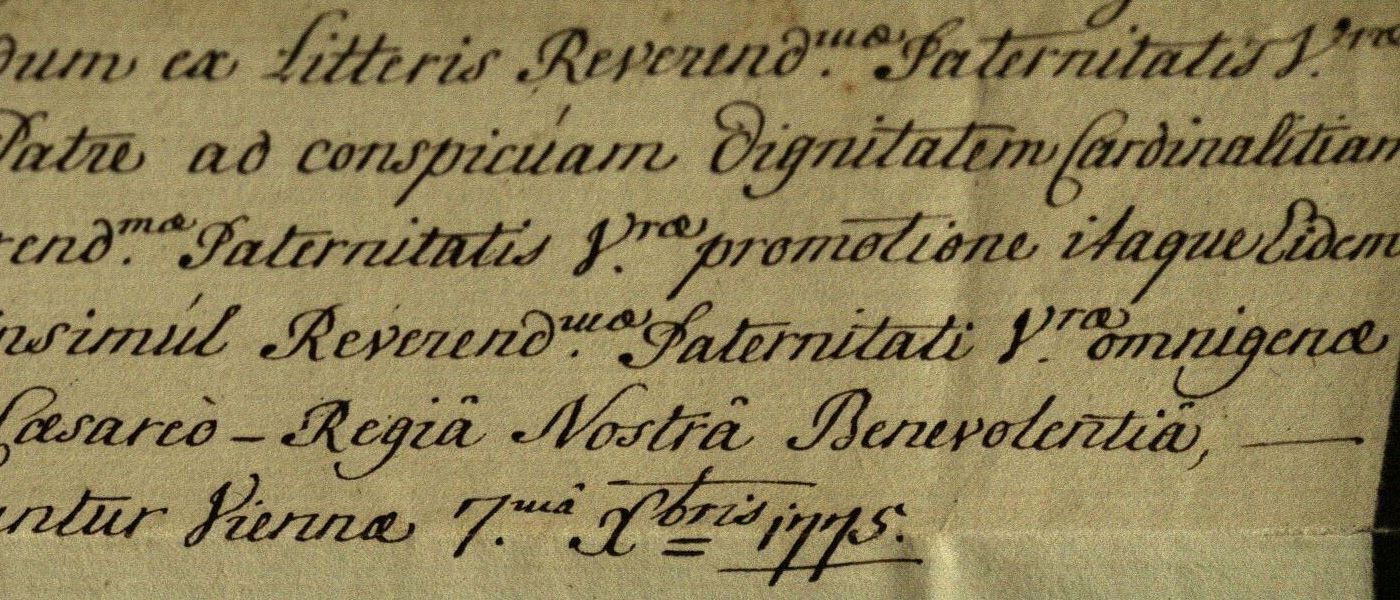 dum ex Litteris Reverend.mæ Paternitatis V.ræ
Patre ad conspicúam Dignitatem Cardinalitiam
rend.mæ Paternitatis V.ræ promotione itaque Eidem
insimúl Reverend.mæ Paternitati V.ræ omnigenæ
Cæsareò – Regiâ Nostrâ Benevolentiâ, —
untur Viennæ 7.mâ Xbris = 1775.